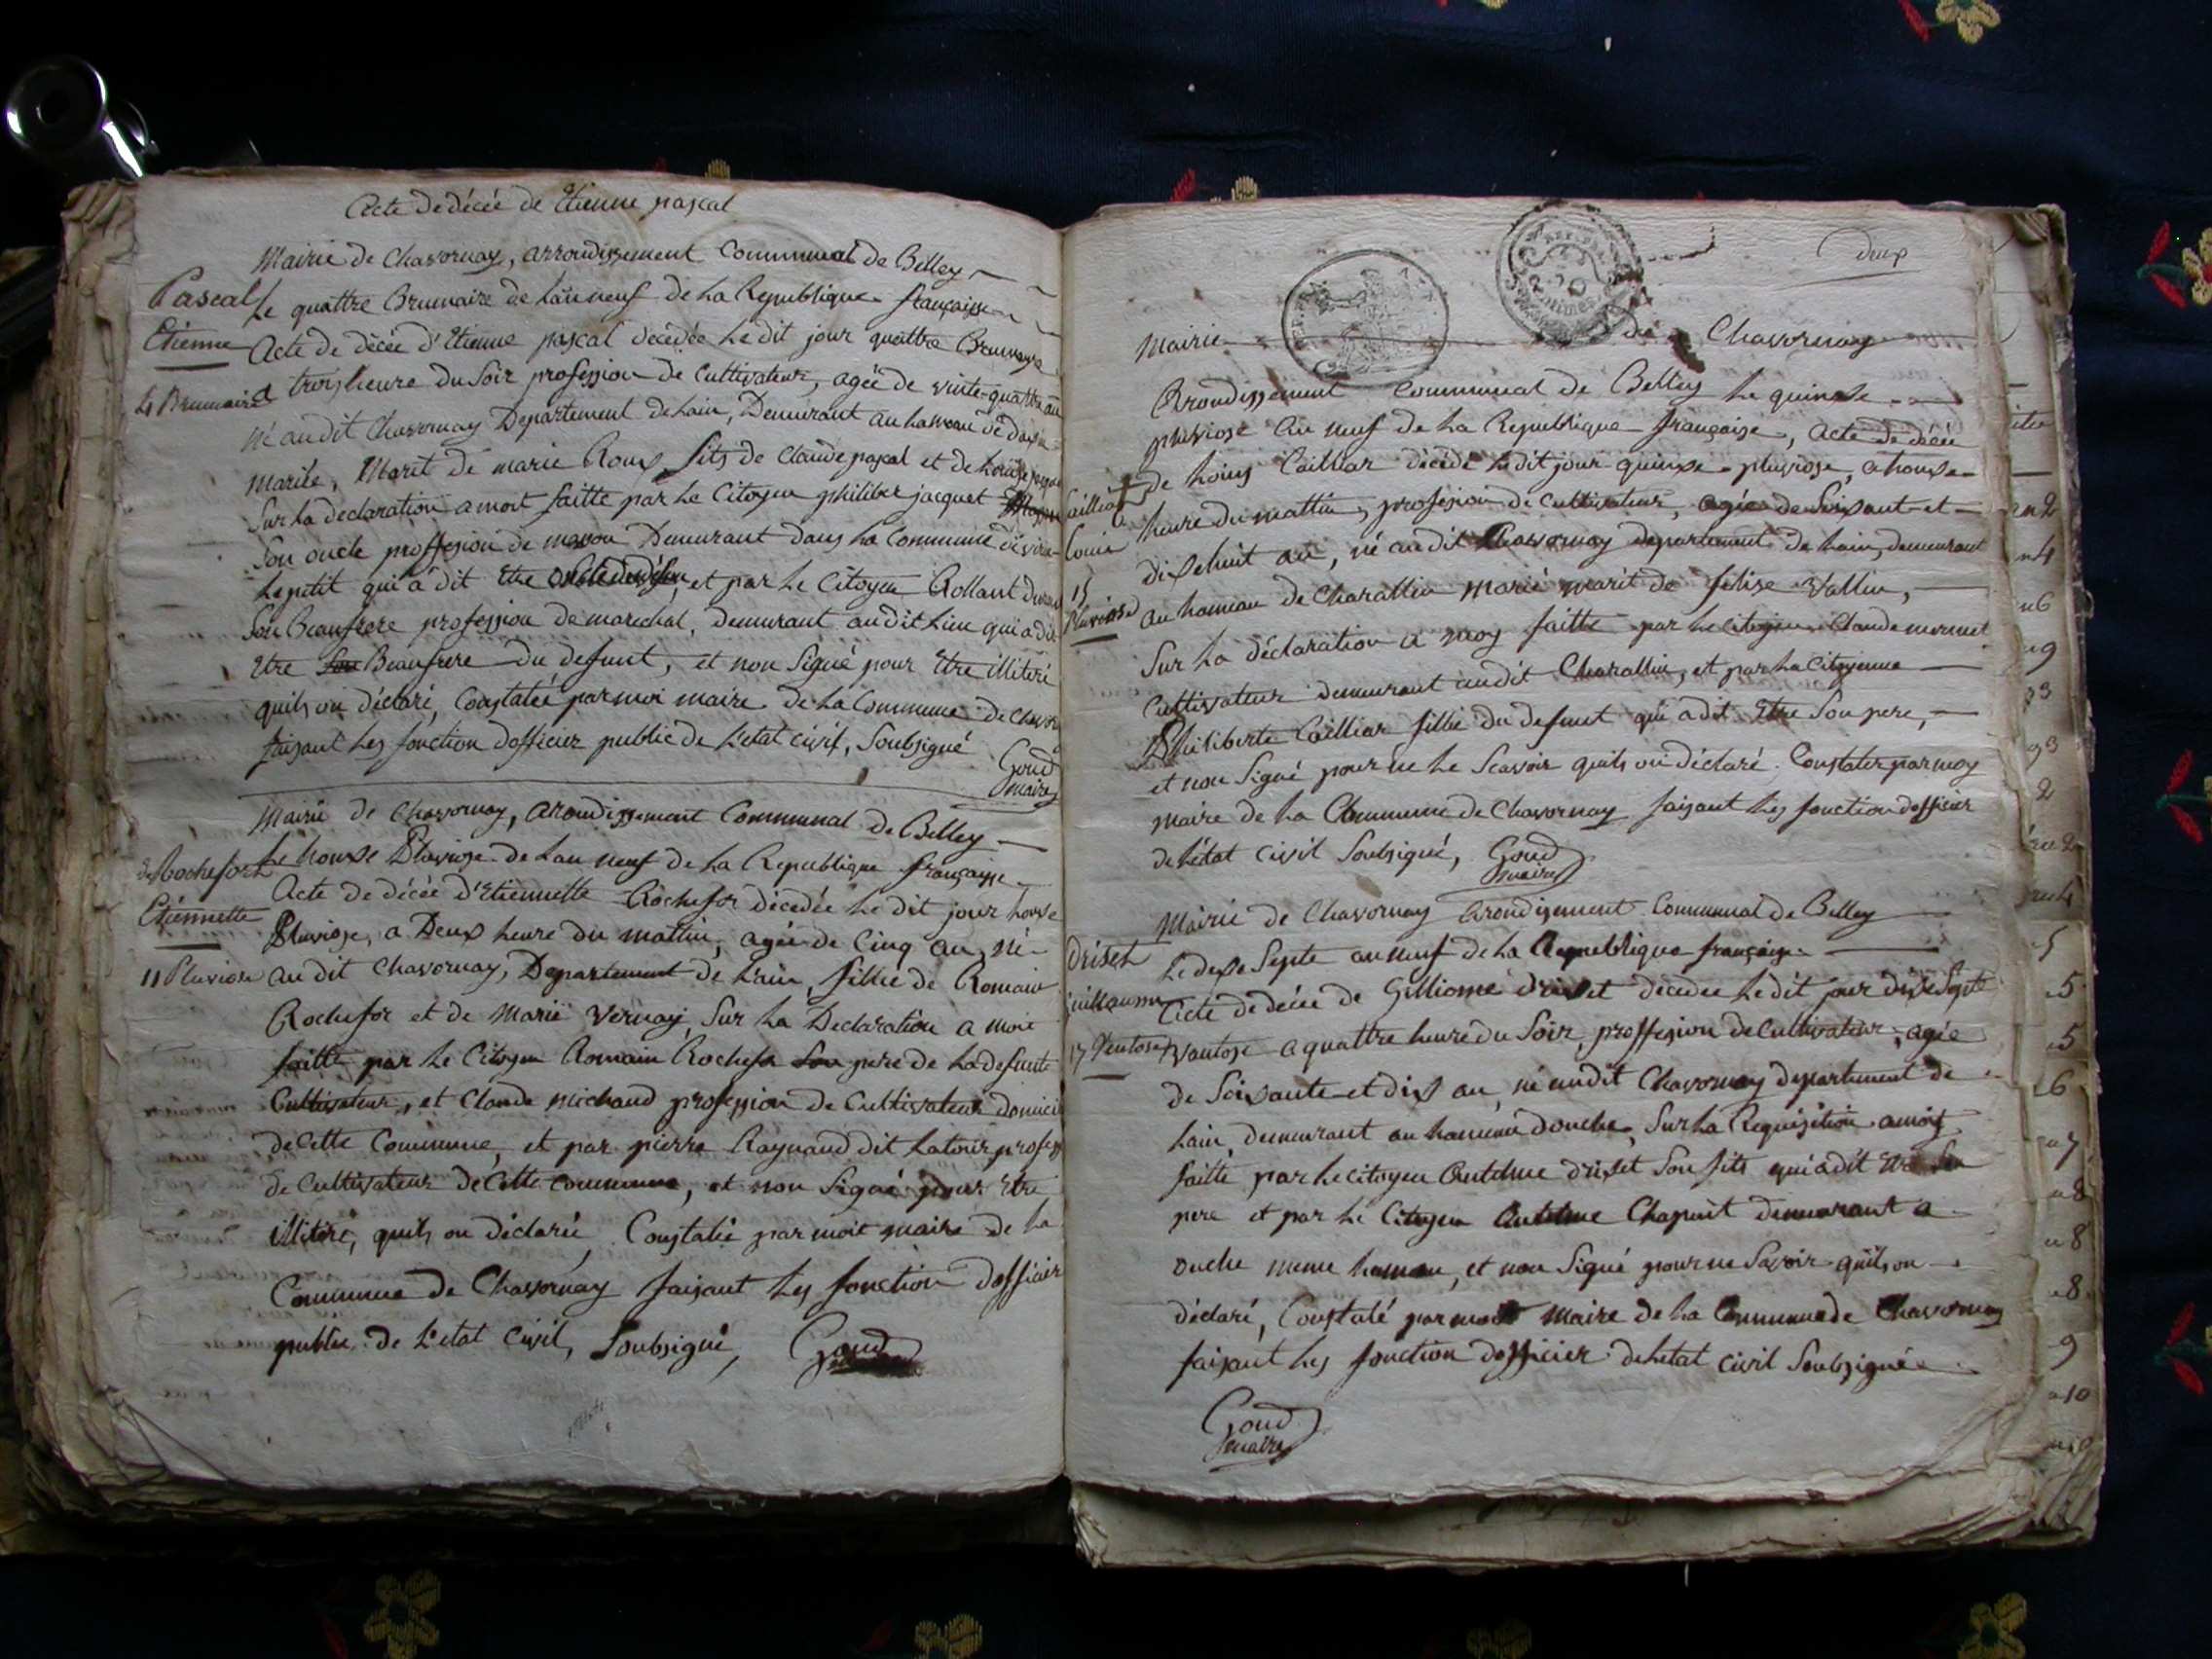 Acte de décée de Etienne pascal
Mairie de Chavornay, arrondissement Communal de Belley
Pascal
Etienne
4 Brumaire
Le quattre Brumaire de lan neuf de La Republique française
Acte de décée d'Etienne pascal décedée Le dit jour quattre Brumaire
a trois heure du Soir profession de Cultivateur, agée de vinte-quattre an
né au dit Chavornay Departement de Lain, Demeurant au hameau de
marile, Marit de marie Roux fils de Claude pascal et de
Sur La declaration a moit faitte par Le Citoyen philiber jacquet
Son oncle proffesion de Demeurant dans La Commune de
Lepetit qui a dit Etre et par Le Citoyen Rollant
Son Beaufrere profession de marechal, demeurant audit Lieu qui a dit
Etre Son Beaufrere du defunt, et non Signé pour Etre illiteré
quils on déclaré, Constatée par moi maire de La Commune de Chavor
faisant Les fonction dofficier public de L'etat civil, Soubsigné
Goud
maire
Mairie de Chavornay, arondissement Communal de Belley
de Rochefort
Etiennette
11 Pluviose
Le honze Pluviose de Lan neuf de La Republique française
Acte de décée d'Etiennette Rochefor décedée Le dit jour honze
Pluviose, a Deux heure du mattin, agée de Cinq an, né
au dit Chavornay, Departement de Lain, fillie de Romain
Rochefor et de Marie Vernay, Sur La Declaration a moit
faitte par Le Citoyen Romain Rochefor Son pere de La defunte
Cultivateur, et Claude michaud profession de Cultivateur domicil
de Cette Commune, et par pierre Raynaud dit Latour profess
de Cultivateur de Cette commune, et non Signé pour Etre
illiteré, quils on déclaré, Constatée par moit maire de La
Commune de Chavornay faisant Les fonction dofficier
public de L'etat Civil, Soubsigné, Goud
deux
20
Mairie de Chavornay
Arondissement Communal de Belley Le quinze
pluviose an neuf de La Republique française, acte de décée
Cailliar
Louis
15
Pluviose
de Louis Cailliar décédé Ledit jour quinze pluviose, a honze
heure du mattin, profession de Cultivateur, agée de Soixant-et
dixehuit an, né audit Chavornay departement de Lain, demeurant
au hameau de Charallin marié marit de felise Vallin,
Sur La déclaration a moy faitte par Le Citoyen Claude mermet
Cultivateur demeurant audit Charallin, et par La Citoyenne
Philiberte Cailliar fillie du defunt qui a dit Etre Son pere,
et non Signé pour ne Le Scavoir quils on déclaré, Constater par moy
maire de La Commune de Chavornay faisant Les fonction dofficier
de Létat Civil Soubsigné, Goud
maire
Mairie de Chavornay Arondisement Communal de Belley
Driset
Guillaume
17 Ventose
Le dixe Septe an neuf de La Republique française
Acte de décée de Gilliome drizet décedée Le dit jour dixe Septe
Vantose a quattre heure du Soir, proffesion de Cultivateur, agée
de Soixante et dix an, né audit Chavornay departement de
Lain, demeurant au hameau d'ouche, Sur La Requisition a moit
faitte par Le citoyen Antelme drizet Son fits qui a dit Etre Son
pere et par Le Citoyen Antelme Chapuit demeurant a
ouche meme hameau, et non Signé pour ne Savoir quils on
déclaré, Constaté par moit maire de La Commune de Chavornay
faisant Les fonction dofficier de Letat civil Soubsigné
Goud
maire